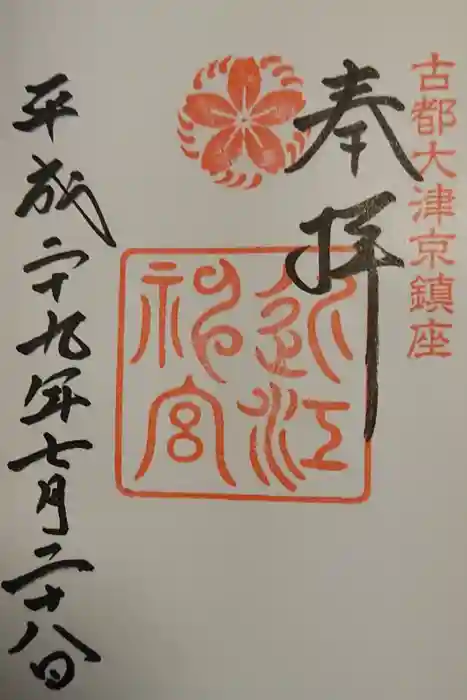 古都大津京鎮座
奉拝
近江神宮
平成二十九年七月二十八日